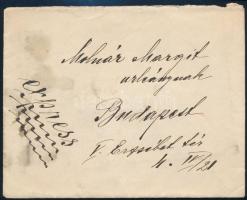 Molnár Margit
urleánynak
Budapest
V. Erzsébet tér
4. IV/21
express